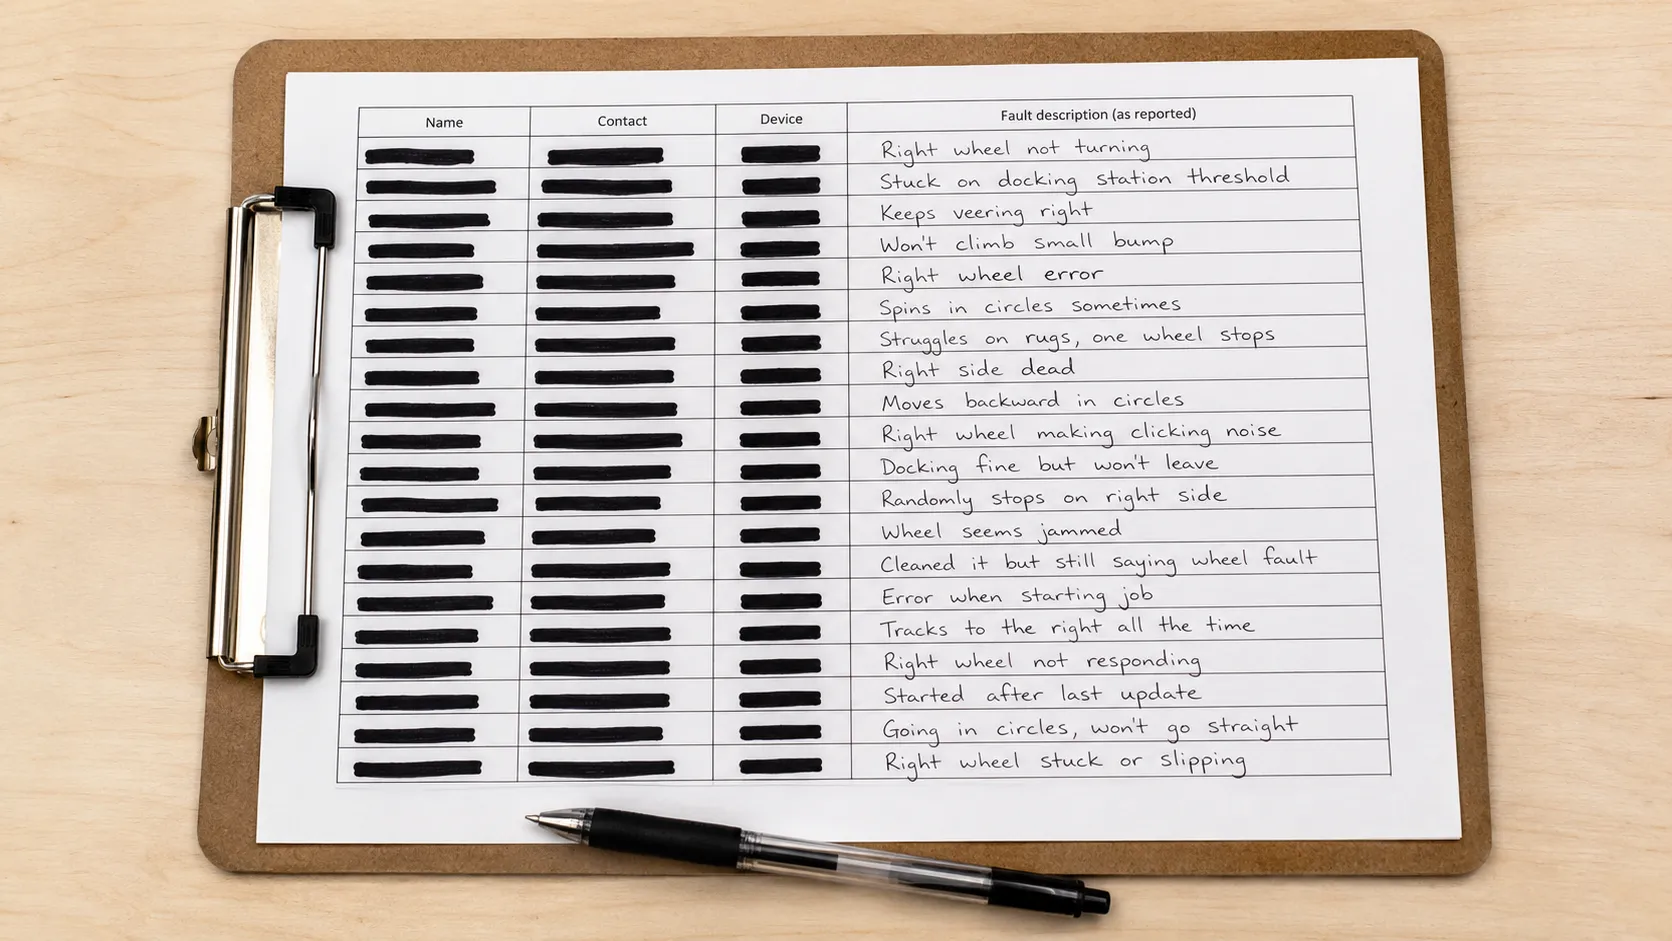 Name Contact Device Fault description (as reported)
Right wheel not turning
Stuck on docking station threshold
Keeps veering right
Won't climb small bump
Right wheel error
Spins in circles sometimes
Struggles on rugs, one wheel stops
Right side dead
Moves backward in circles
Right wheel making clicking noise
Docking fine but won't leave
Randomly stops on right side
Wheel seems jammed
Cleaned it but still saying wheel fault
Error when starting job
Tracks to the right all the time
Right wheel not responding
Started after last update
Going in circles, won't go straight
Right wheel stuck or slipping